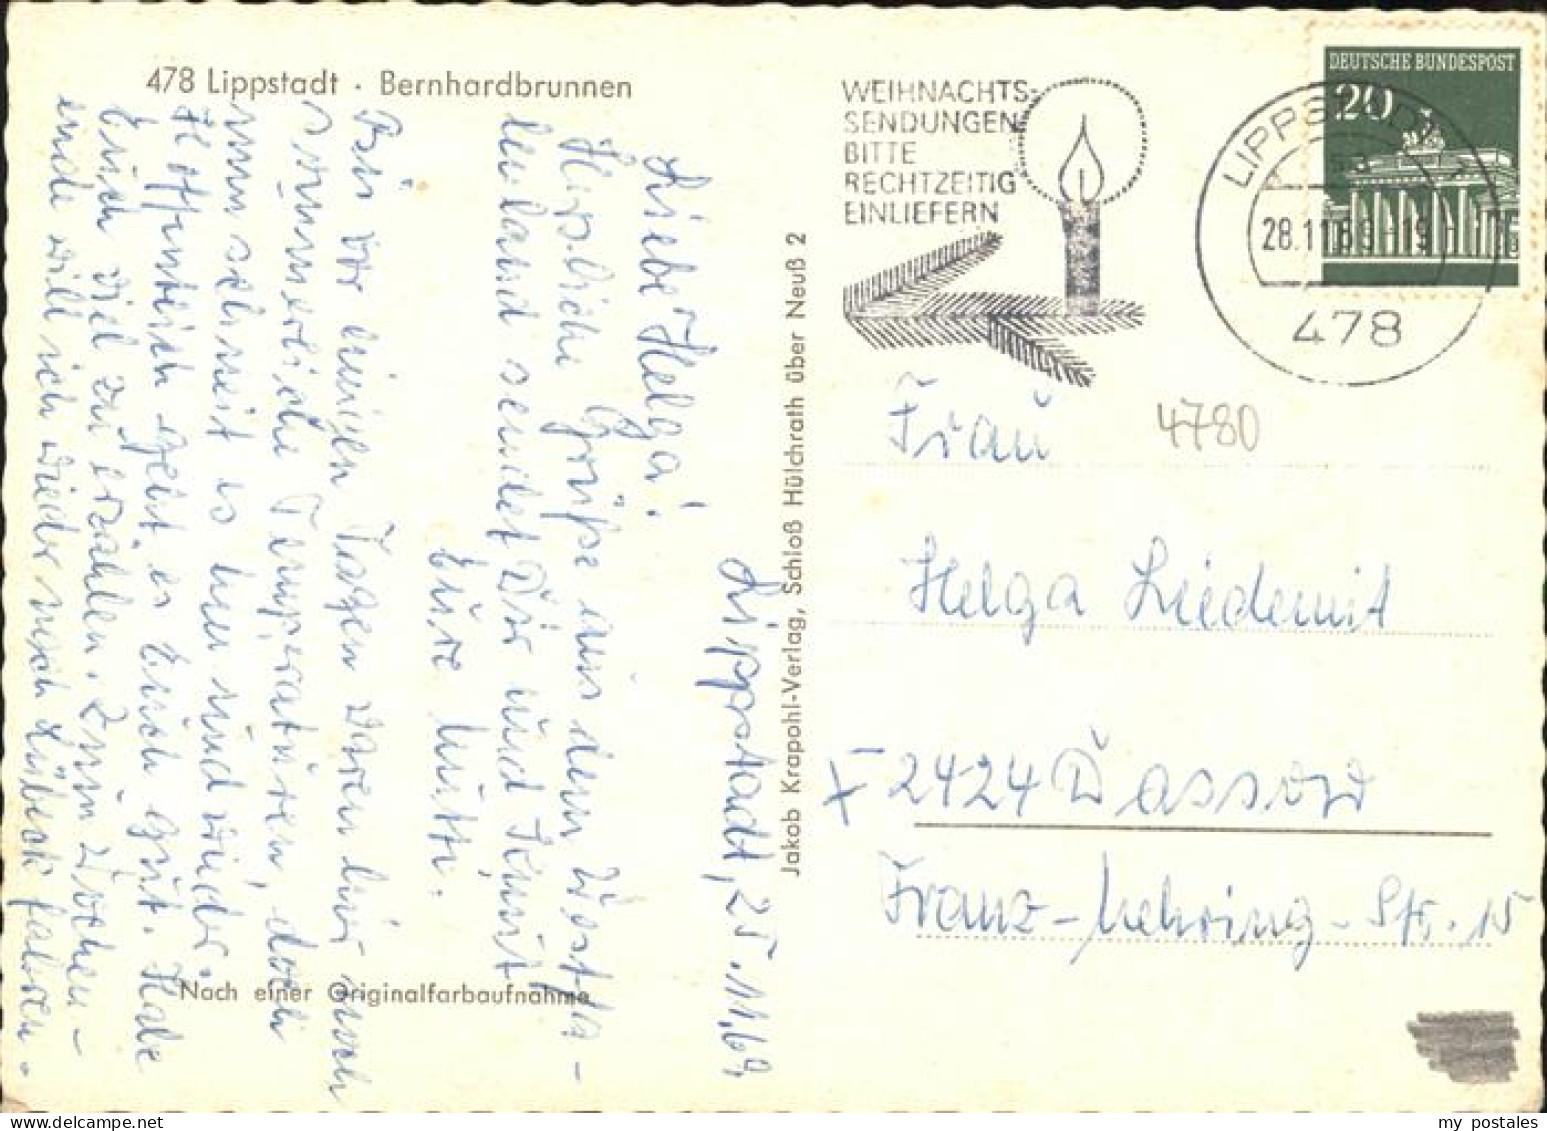 478 Lippstadt · Bernhardbrunnen
WEIHNACHTS-
SENDUNGEN
BITTE
RECHTZEITIG
EINLIEFERN
DEUTSCHE BUNDESPOST
20
LIPPSTADT
28.11.69-19
478
4780
Jakob Krapohl-Verlag, Schloß Hülchrath über Neuß 2
Lippstadt, 25.11.69
Liebe Helga!
Herzliche Grüße aus dem Westfa-
lenland sendet Dir und
Eure Mutti.
Bis vor einigen Tagen waren hier noch
sommerliche Temperaturen, doch
nun schneit es hin und wieder.
Hoffentlich geht es Euch gut. Habe
Euch viel zu erzählen. Zum Wochen-
ende will ich wieder nach Lübeck fahren.
Nach einer Originalfarbaufnahme
Frau
Helga Liedemit
X-2424 Dassow
Franz-Mehring-Str. 15
my postales